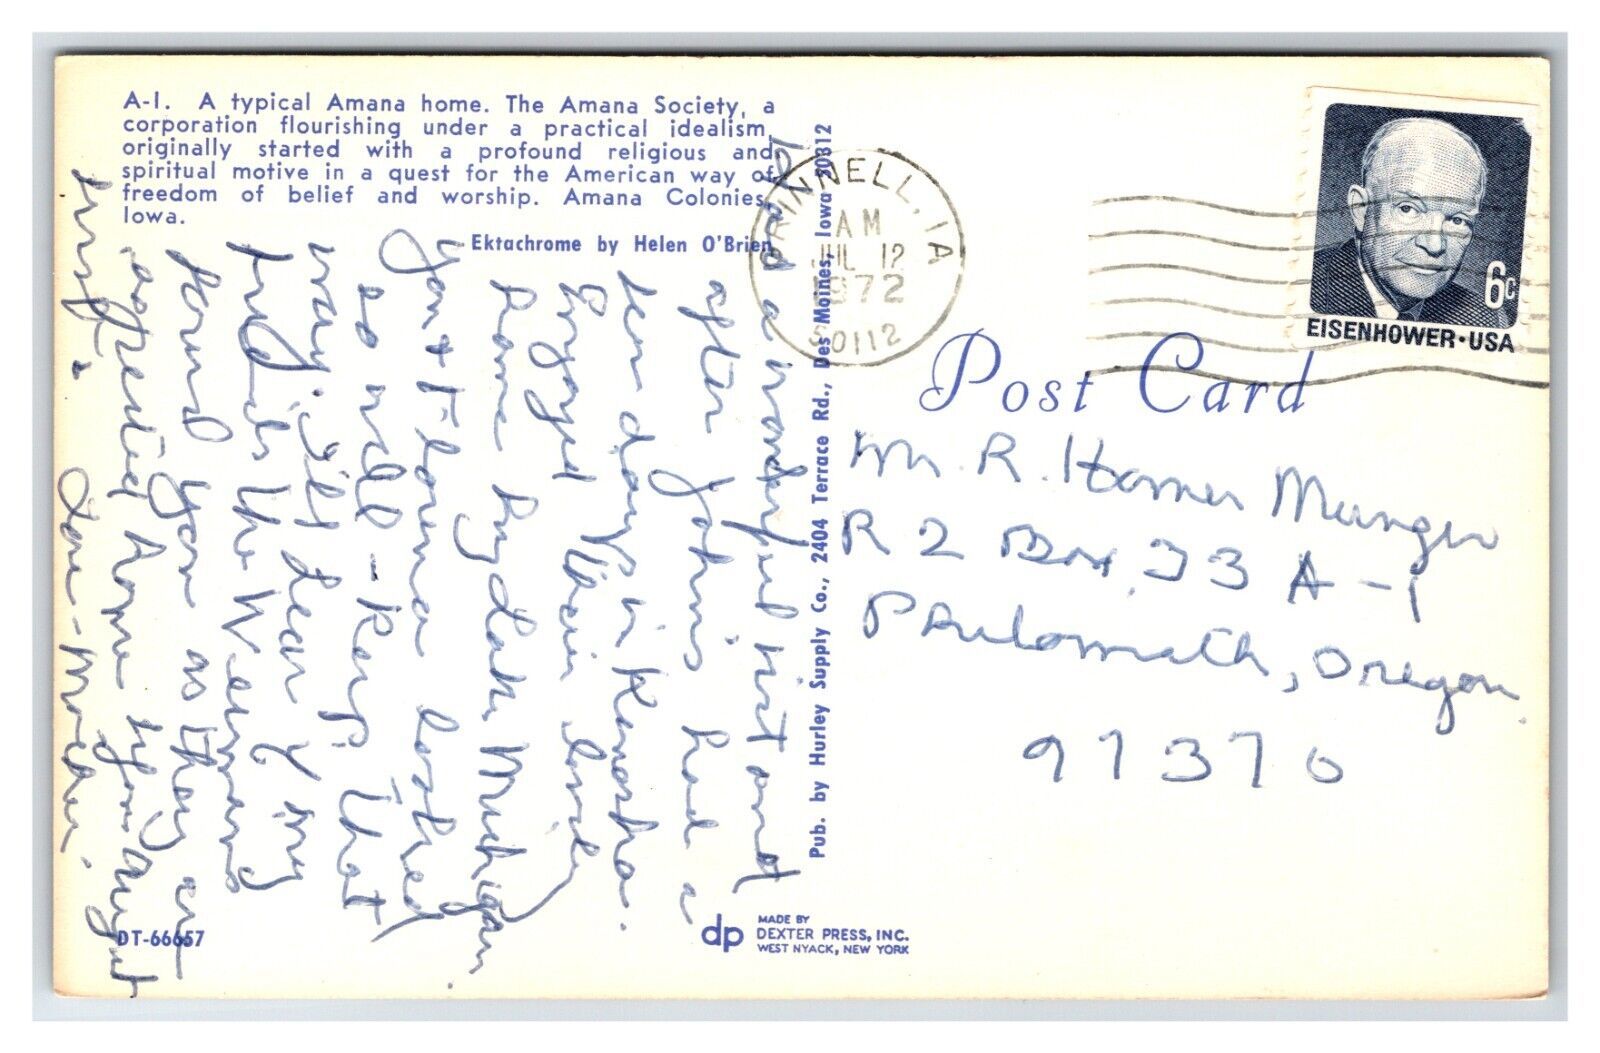 A-1. A typical Amana home. The Amana Society, a
corporation flourishing under a practical idealism,
originally started with a profound religious and
spiritual motive in a quest for the American way of
freedom of belief and worship. Amana Colonies,
Iowa.
Ektachrome by Helen O'Brien
GRINNELL, IA
AM
JUL 12
1972
50112
6c
EISENHOWER·USA
Post Card
Mr R. Homer Munger
R 2 Box 33 A-1
Philomath, Oregon
97370
Pub. by Hurley Supply Co., 2404 Terrace Rd., Des Moines, Iowa 50312
had a wonderful visit and
after John's had a
few days in Kenosha.
Enjoyed their lovely
home by Lake Michigan
You & Florena looked
so well - Keep that
way. I'll hear of my
from the Weimans
found you as they are
expected home
trip.
Love - Mother.
DT-66657
dp
MADE BY
DEXTER PRESS, INC.
WEST NYACK, NEW YORK